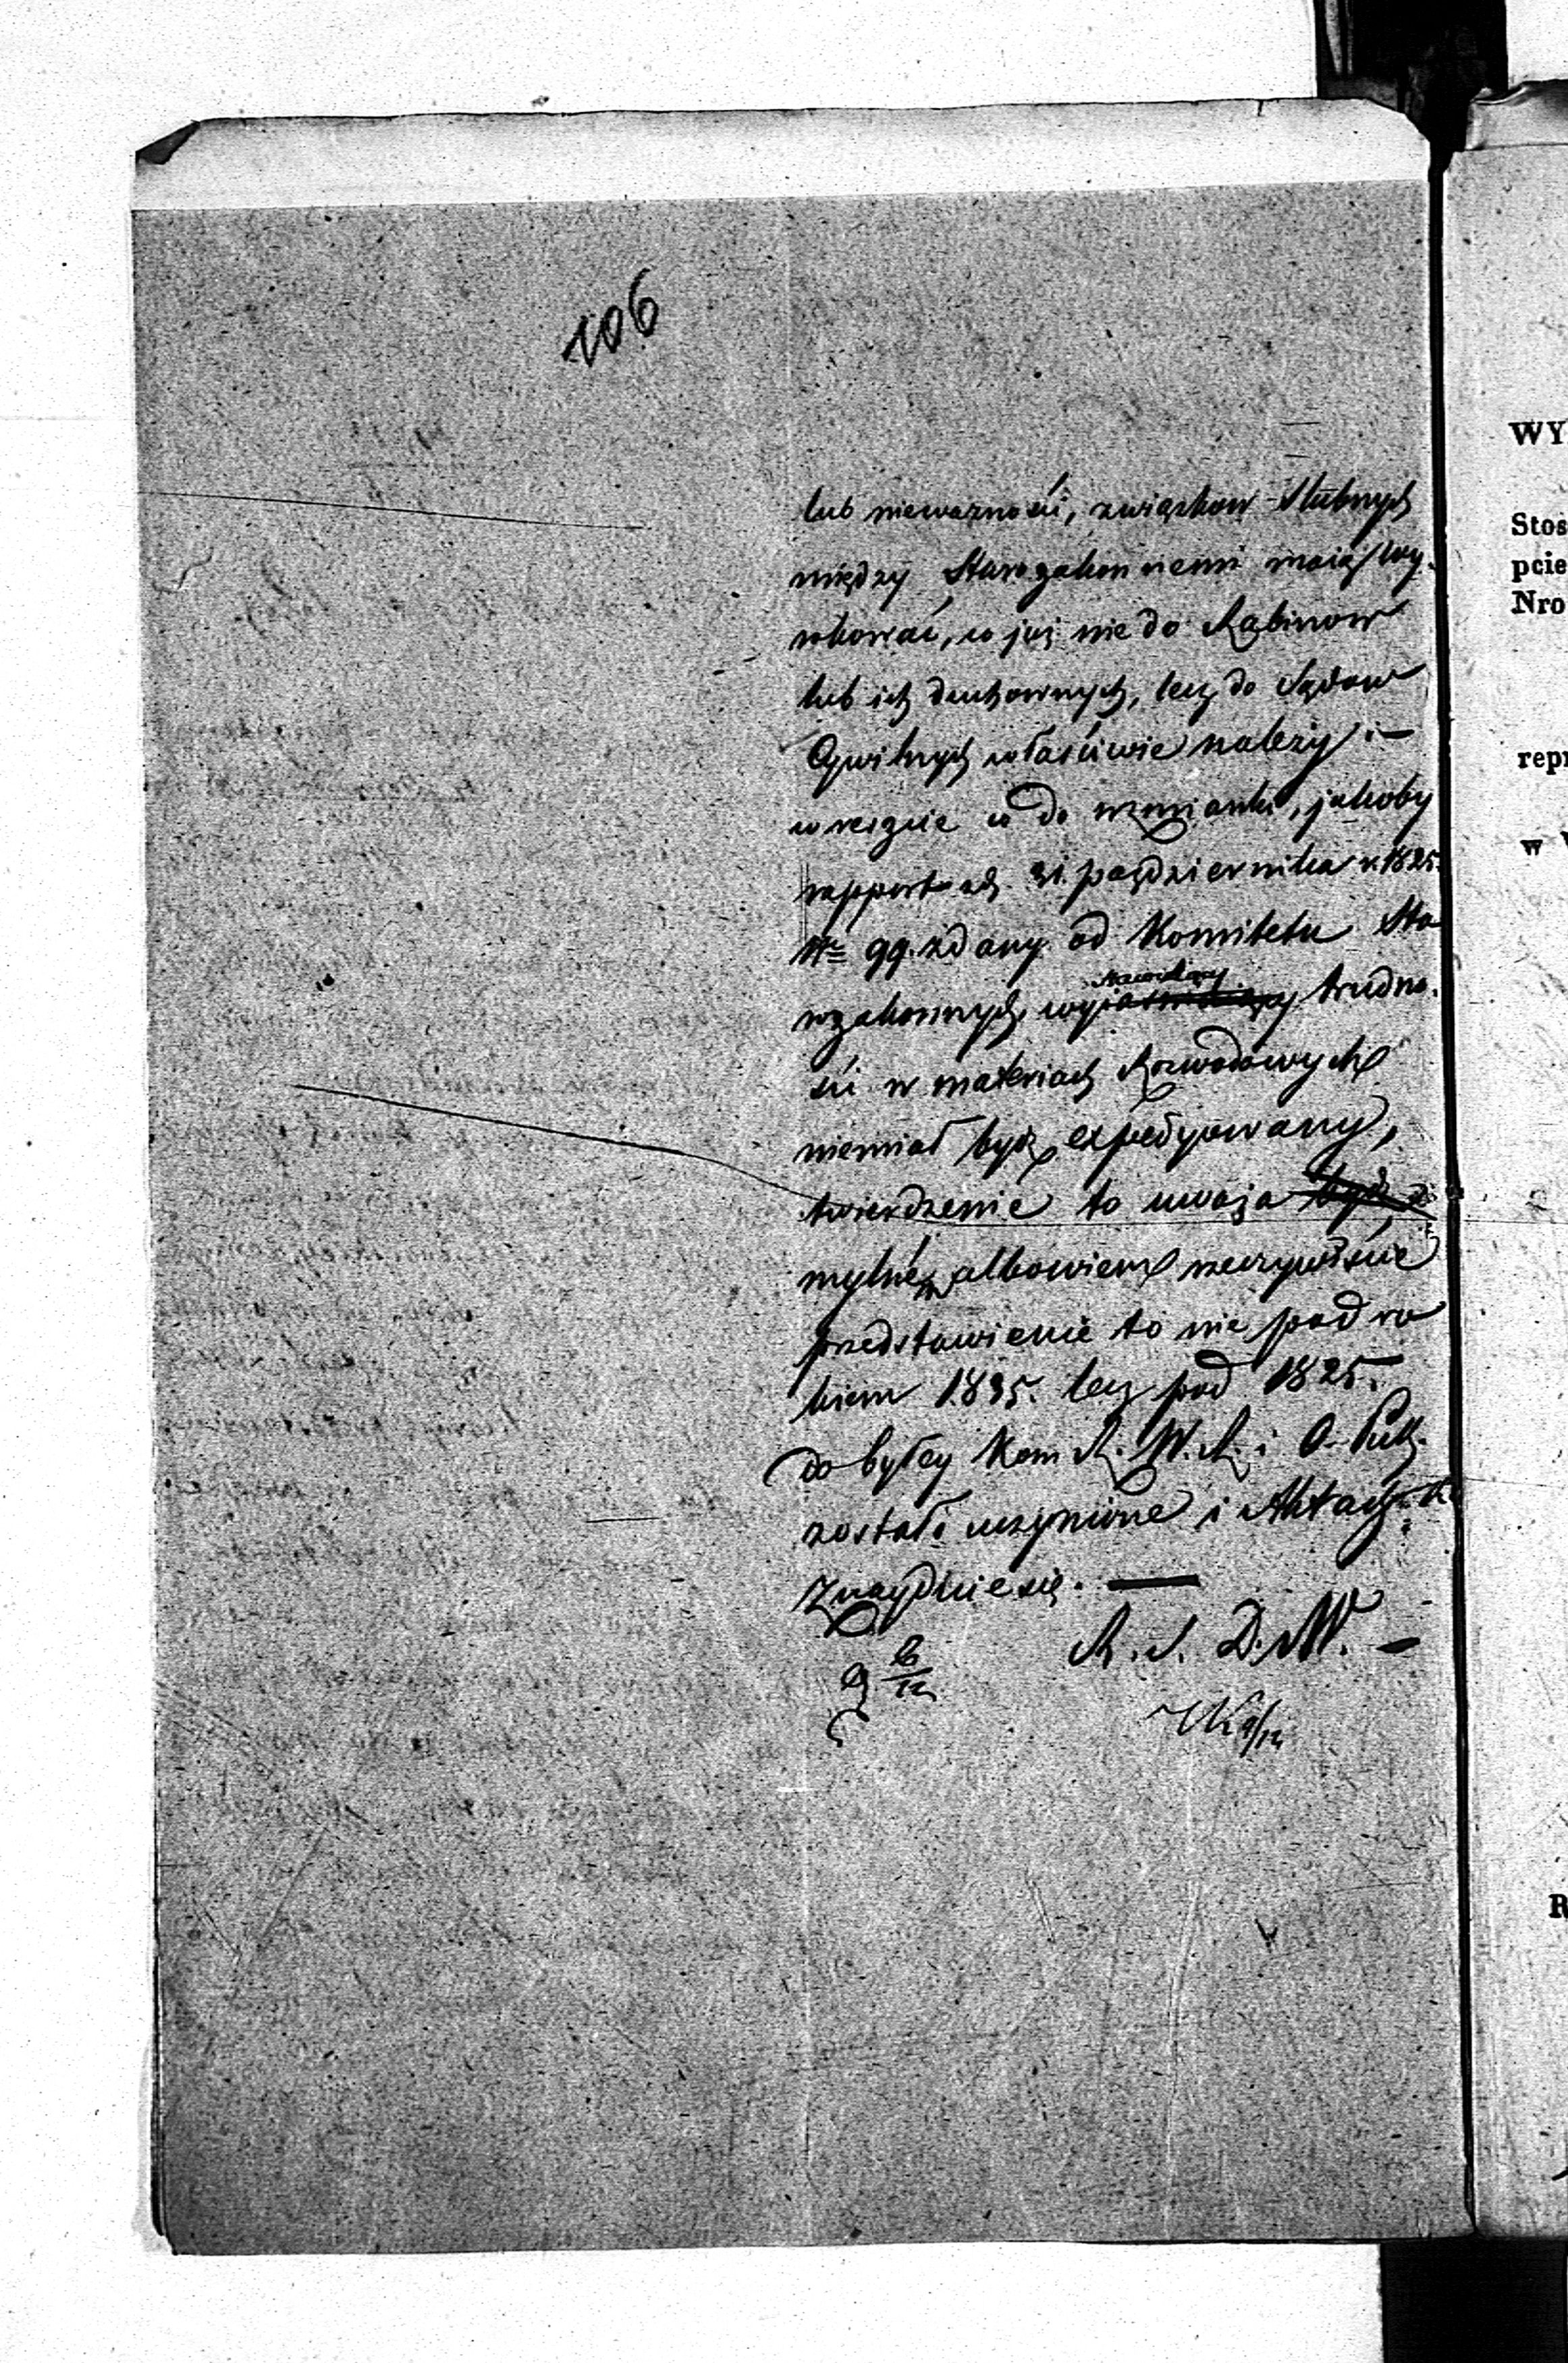 106
lub nieważności, związkow Slubnych
między Starozakonnemi maią wy-
rokować, co już nie do Rabinow
lub ich duchownych, lecz do Sądow
Cywilnych właściwie należy :—
wreszcie co do wzmianki, jakoby
rapport z d. 31. października r. 1825.
Nr 99. zdany od Komitetu Sta
rozakonnych, trudno.
ści w materiach Rozwodowych
niemiał bydź expedyowany,
twierdzenie to uważa bydź za
mylné, albowiem rzeczywiście
przedstawienie to nie pod ro
kiem 1835. lecz pod 1825.
do byłey Kom R. W. R. i O. Pub.
zostało uczynione i w Aktach
Znayduie się. —
R. S. D. W. —
6/12
9/12
WY
Stos
pcie
Nro
repr
w
R